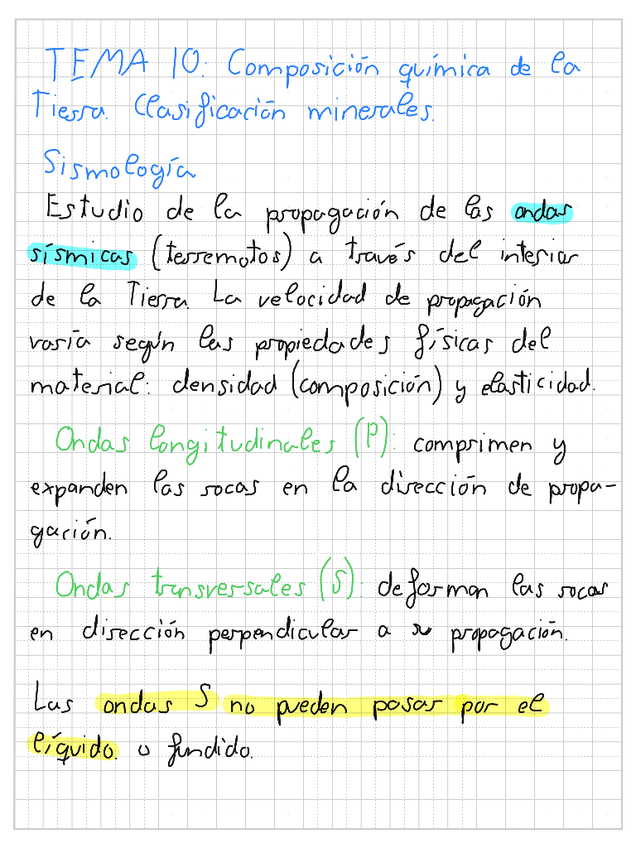 TEMA 10: Composición química de la
Tierra. Clasificación minerales.
Sismología
Estudio de la propagación de las ondas
sísmicas (terremotos) a través del interior
de la Tierra. La velocidad de propagación
varía según las propiedades físicas del
material: densidad (composición) y elasticidad.
Ondas longitudinales (P): comprimen y
expanden las rocas en la dirección de propa-
gación.
Ondas transversales (S): deforman las rocas
en dirección perpendicular a su propagación.
Las ondas S no pueden pasar por el
líquido. o fundido.